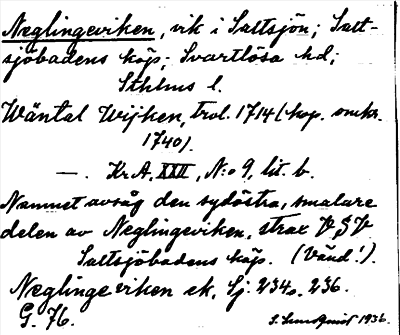 Neglingeviken, vik i Saltsjön; Salt-
sjöbadens köp; Svartlösa hd;
Sthlms l.
Wäntal Wijken, trol. 1714 (kop. omkr.
1740).
—. Kr.A. XXII, N:o 9, lit. b.
Namnet avsåg den sydöstra, smalare
delen av Neglingeviken, strax V §V
Saltsjöbadens köp. (Vänd!).
Neglingeviken ek. Gj. 234, 236.
G. 76.
S. 1936.